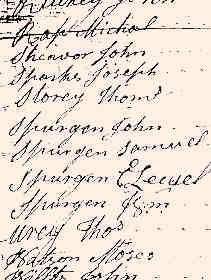 John
Rap Michal
Sheavor John
Sparks Joseph
Storey Thoms
Spurgen John
Spurgen Samuel
Spurgen
Spurgen Jsm
Urey Thos
Watson Moses
John